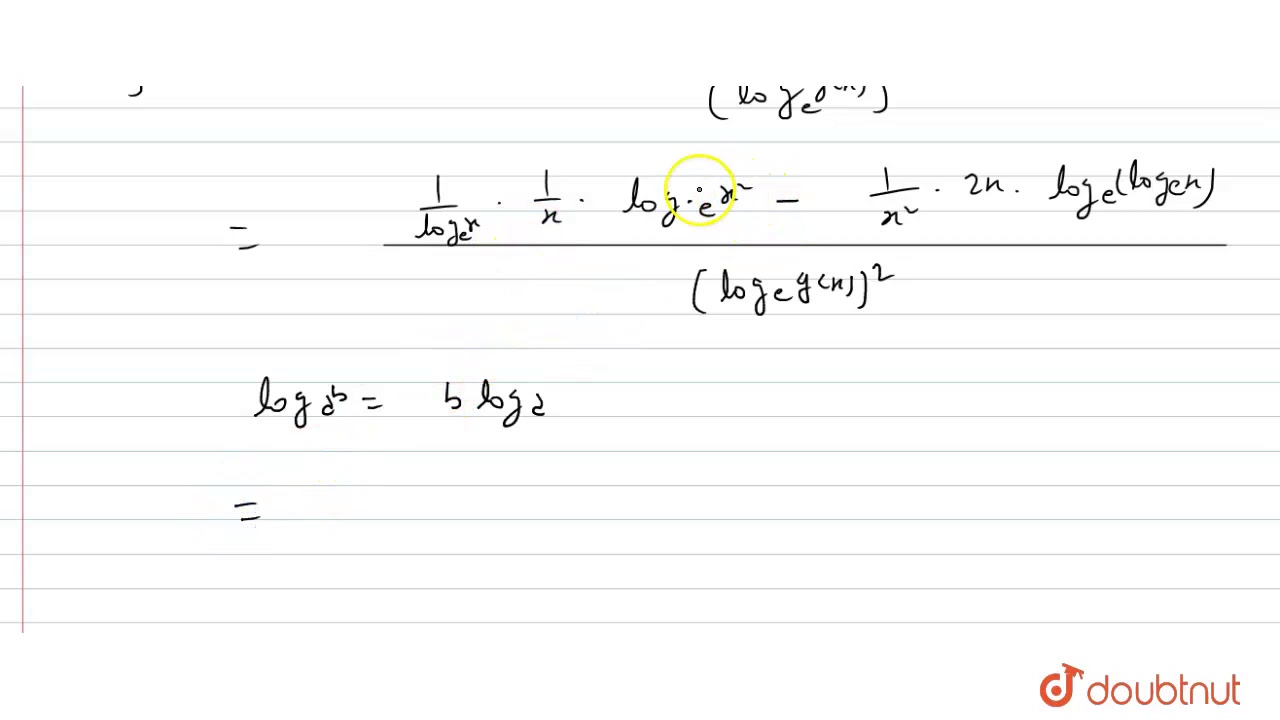 (log_e g(x))
= (1/log_e x · 1/x · log_e x² − 1/x² · 2x · log_e(log_e x)) / (log_e g(x))²
log a^b = b log a
=
doubtnut